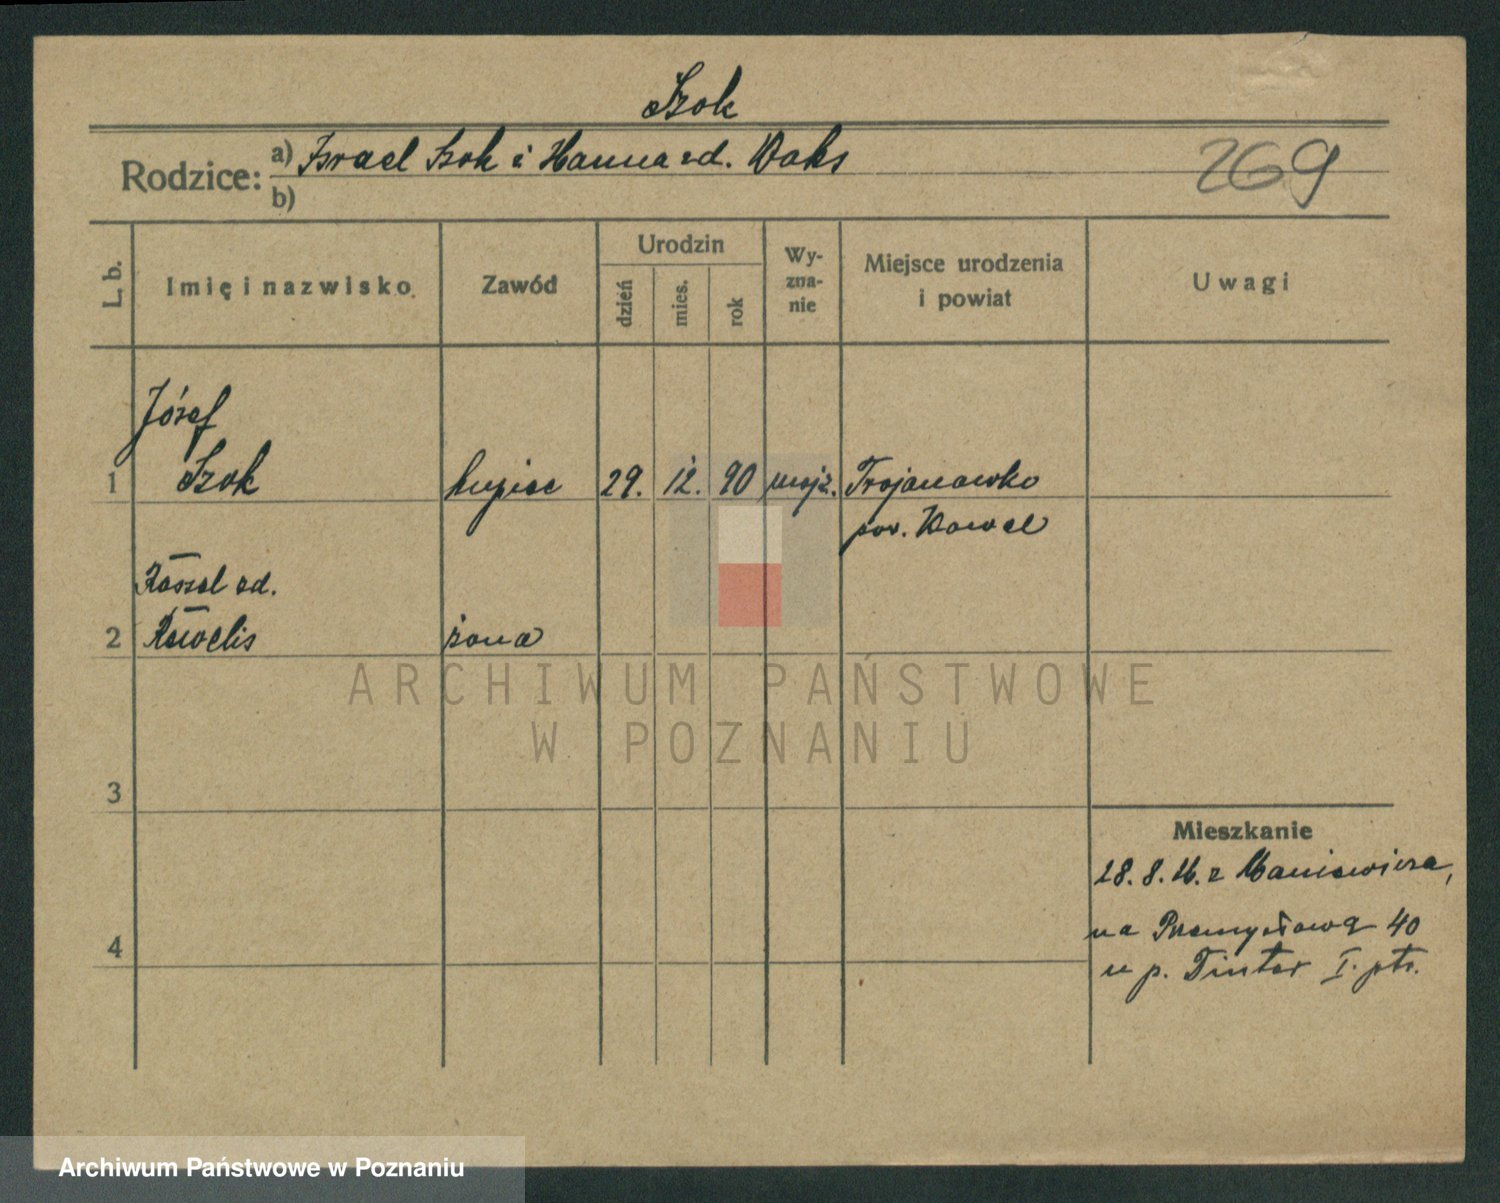 Szok
Rodzice: a) Izrael Szok i Hanna zd. Waks
269
b)
L. b.
Imię i nazwisko
Zawód
Urodzin
dzień
mies.
rok
Wy-
zna-
nie
Miejsce urodzenia
i powiat
Uwagi
Józef
1 Szok kupiec 29. 12. 90 mojż. Trojanowko
pow. Kowel
Raszel zd.
2 żona
3
4
Mieszkanie
28. 8. 26. z
na Przemysłową 40
u p. Tinter I. ptr.
ARCHIWUM PAŃSTWOWE
W POZNANIU
Archiwum Państwowe w Poznaniu